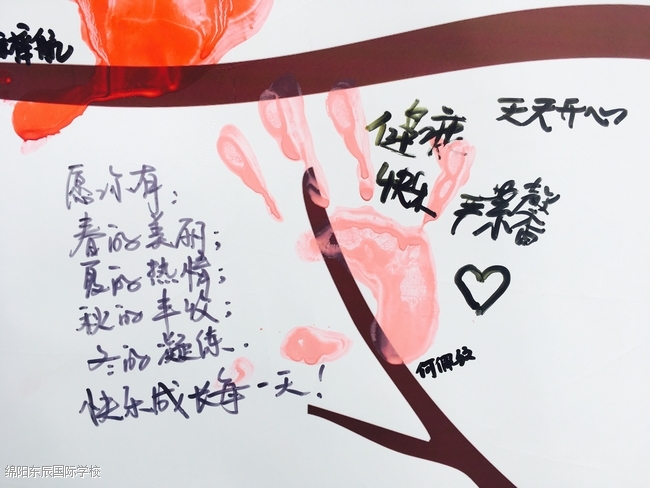 天天开心
健康
快乐
愿你有：
春的美丽；
夏的热情；
秋的丰收；
冬的凝练.
快乐成长每一天！
绵阳东辰国际学校